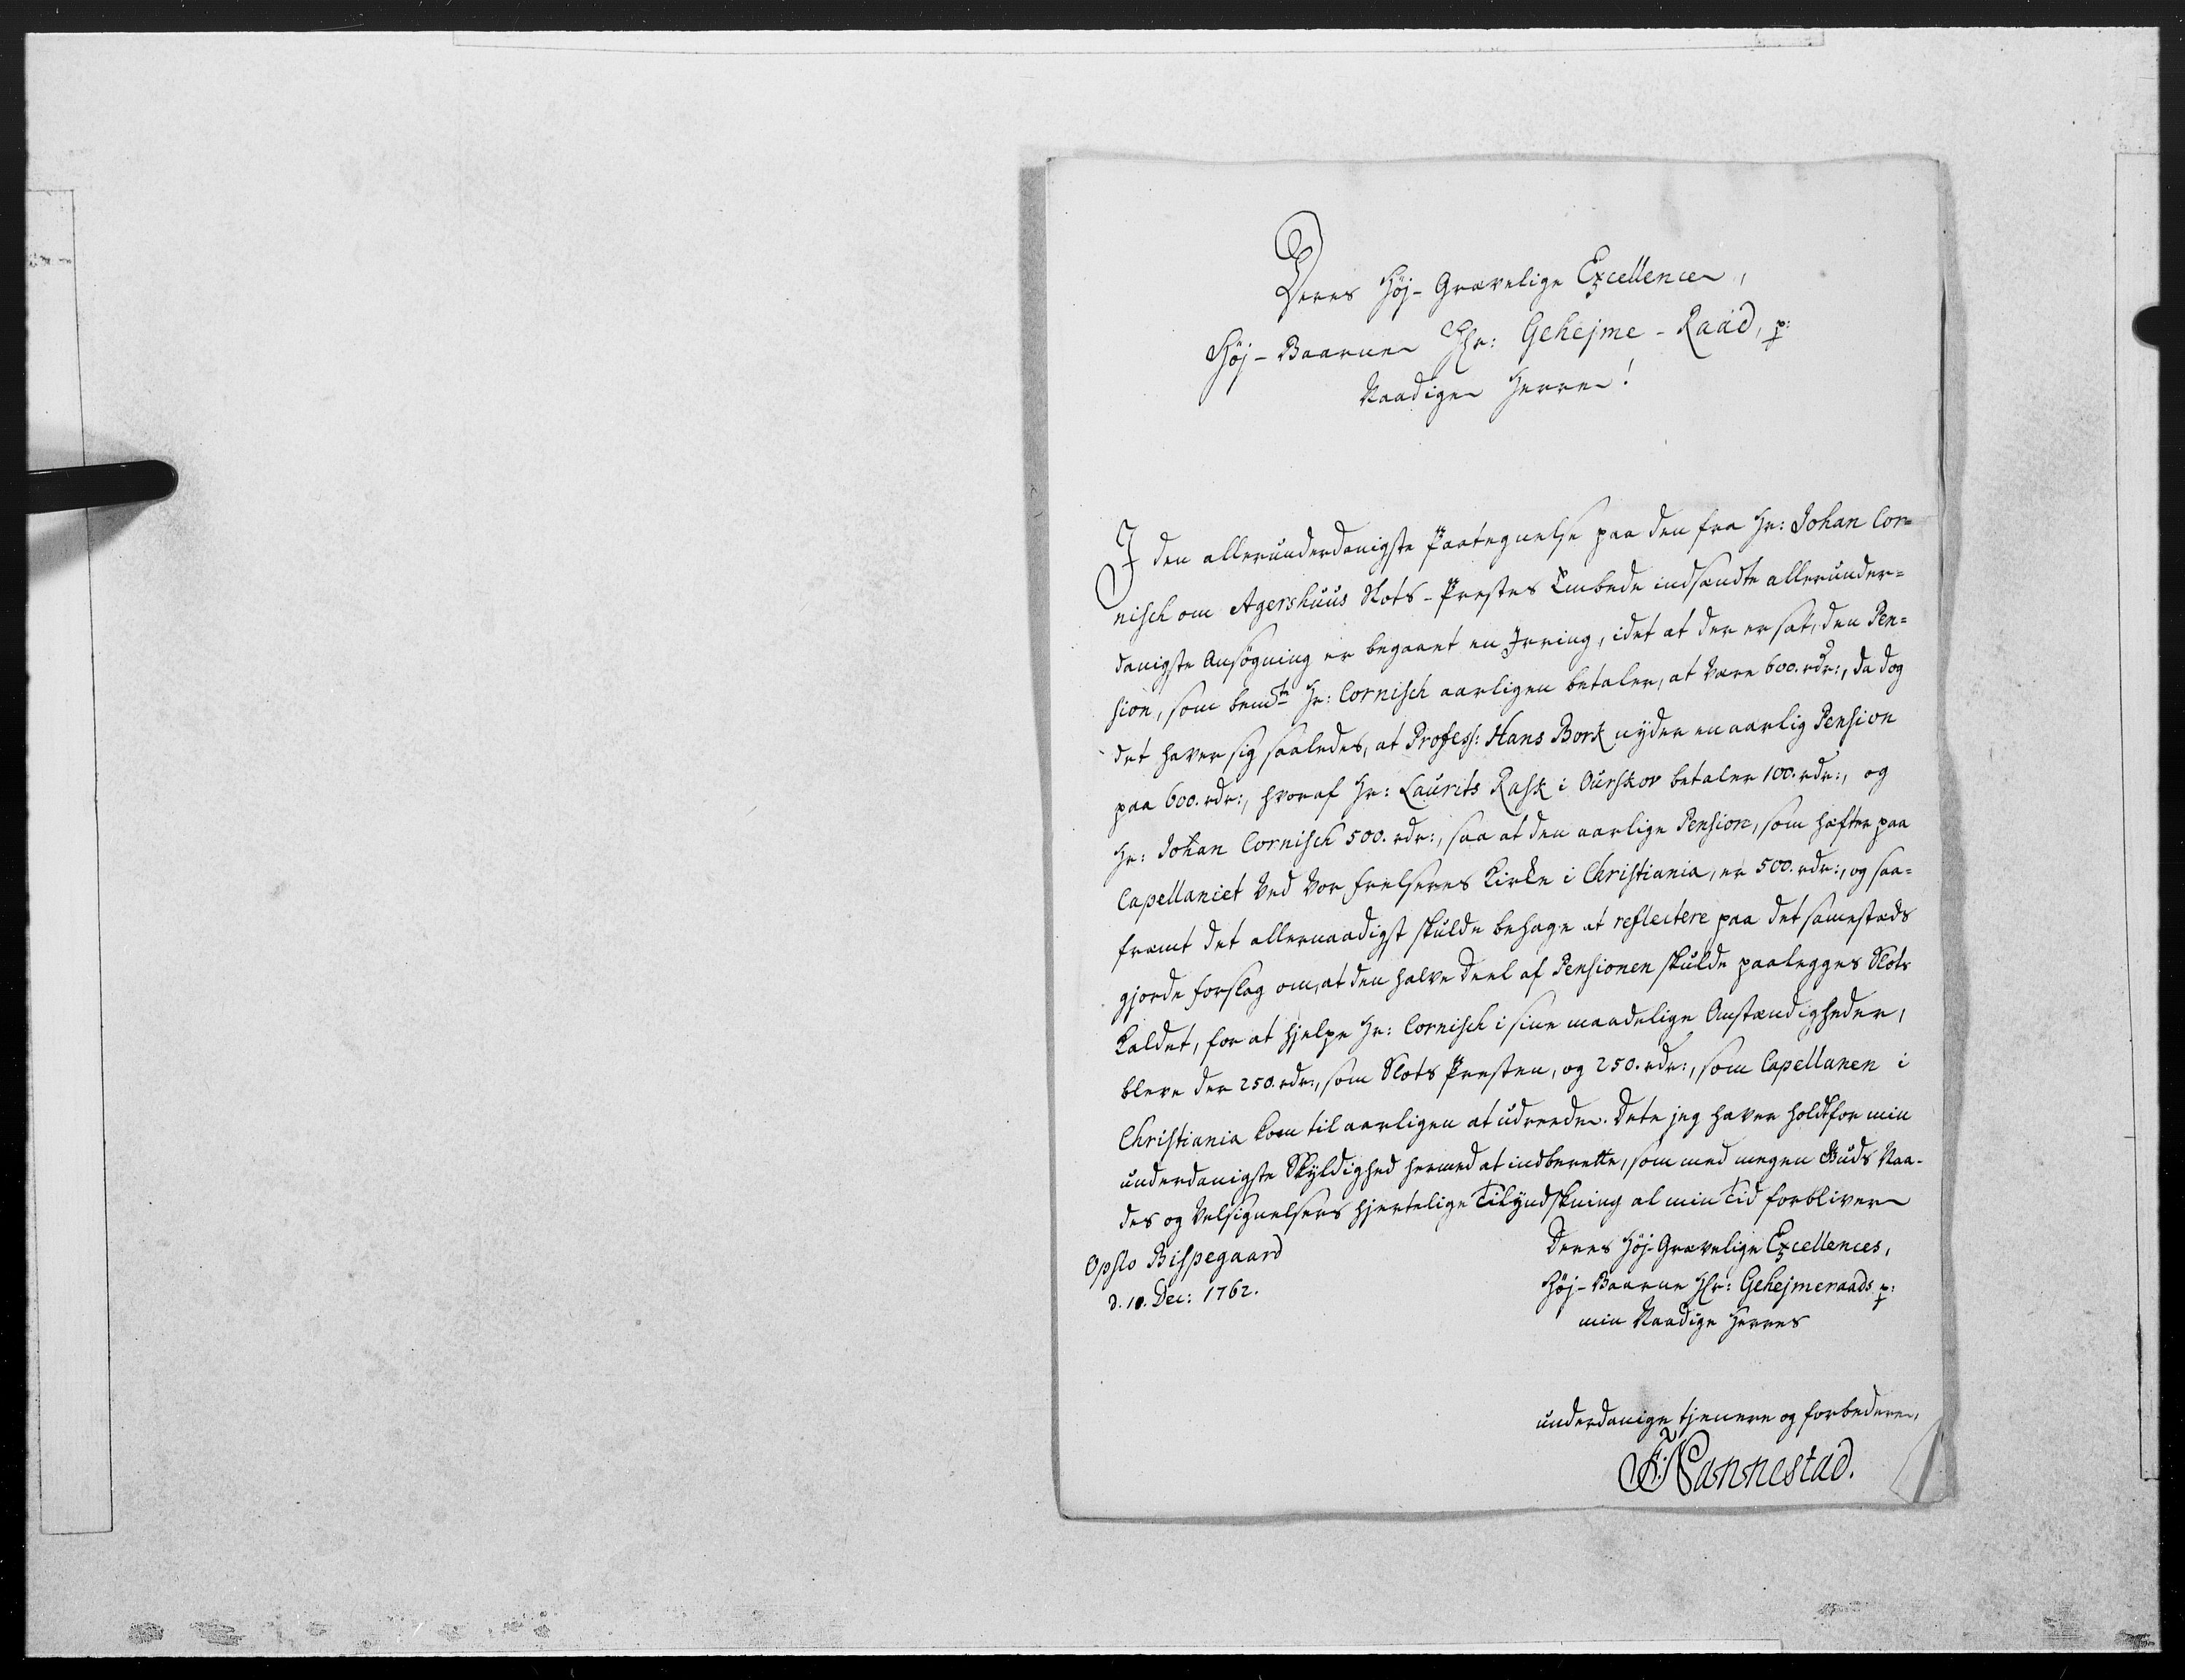 Deres Høj-Grævelige Excellence,
Høj-Baarne Hr: Gehejme-Raad, p:
Naadige Herre!
I den allerunderdanigste Paategnelse paa den fra Hr: Johan Cor=
nisch om Agershuus Slots-Prestes Embede indsendte allerunder=
danigste Ansøgning er begaaet en Irring, idet at der er sat, den Pen=
sion, som bemte Hr: Cornisch aarligen betaler, at være 600. rdr:, da dog
det haver sig saaledes, at Profess: Hans Bork nyder en aarlig Pension
paa 600. rdr:, hvoraf Hr: Laurits Rask i Ourskov betaler 100. rdr:, og
Hr: Johan Cornisch 500. rdr:, saa at den aarlige Pension, som hefter paa
Capellaniet ved Vor Frelseres Kirke i Christiania, er 500. rdr:, og saa=
fremt det allernaadigst skulde behage at reflectere paa det samesteds
gjorde Forslag om, at den halve Deel af Pensionen skulde paalegges Slots
Kaldet, for at hjelpe Hr: Cornisch i sine maadelige Omstændigheder,
bleve der 250. rdr:, som Slots Presten, og 250. rdr:, som Capellanen i
Christiania kom til aarligen at udreede. Dette jeg haver holdt for min
underdanigste Skyldighed hermed at indberette, som med megen Guds Naa-
des og Velsignelsers hjertelige Tilyndskning al min Tid forbliver
Opslo Bispegaard
d. 10. Dec: 1762.
Deres Høj-Grævelige Excellences,
Høj-Baarne Hr: Gehejmeraads p:
min Naadige Herres
underdanige tjenere og forbedere,
F: Nannestad.